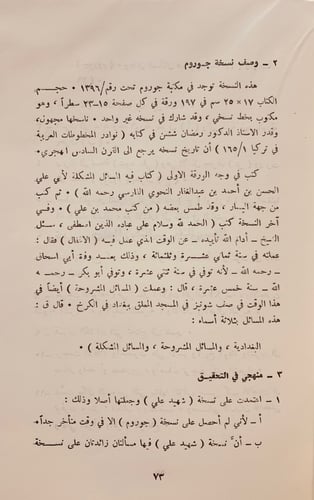 ٢ ـ وصف نسخة جوروم
هذه النسخة توجد في مكتبة جوروم تحت رقم /١٣٩٦ • حجم
الكتاب ١٧ × ٢٥ سم في ١٩٧ ورقة في كل صفحة ١٥-٢٣ سطراً ، وهو
مكتوب بخط نسخي ، وقد شارك في نسخه غير واحد • ناسخها مجهول،
وقدر الاستاذ الدكتور رمضان ششن في كتابه ( نوادر المخطوطات العربية
في تركيا ١/١٦٥ ) أن تاريخ نسخه يرجع الى القرن السادس الهجري •
كتب في وجه الورقة الاولى ( كتاب فيه المسائل المشكلة لأبي علي
الحسن بن أحمد بن عبدالغفار النحوي الفارسي رحمه الله ) • ثم كتب
من جهة اليسار ، وقد طمس بعضه ( من كتب محمد بن علي ) • وفي
آخر النسخة كتب ( الحمد لله وسلام على عباده الذين اصطفى ، سئل
الشيخ ـ أدام الله تأييده ـ عن الوقت الذي عمل فيه ( الاغفال ) فقال :
عملته في سنة ثماني عشرة وثلثمائة ، وذلك بعد وفاة أبي اسحاق
ـ رحمه الله ـ لأنه توفي في سنة ثنتي عشرة ، وتوفي أبو بكر ـ رحمه
الله ـ سنة خمس عشرة ، قال : وعملت ( المسائل المشروحة ) أيضاً في
هذا الوقت في صف شونيز في المسجد الملق ببغداد في الكرخ • قال ق :
هذه المسائل بثلاثة أسماء :
البغدادية ، والمسائل المشروحة ، والمسائل المشكلة ) •
٣ ـ منهجي في التحقيق
١ ـ اعتمدت على نسخة ( شهيد علي ) وجعلتها أصلا وذلك :
أ ـ لأني لم احصل على نسخة ( جوروم ) الا في وقت متأخر جداً•
ب ـ أن نسخة ( شهيد علي ) فيها مسألتان زائدتان على نسخة
٧٣